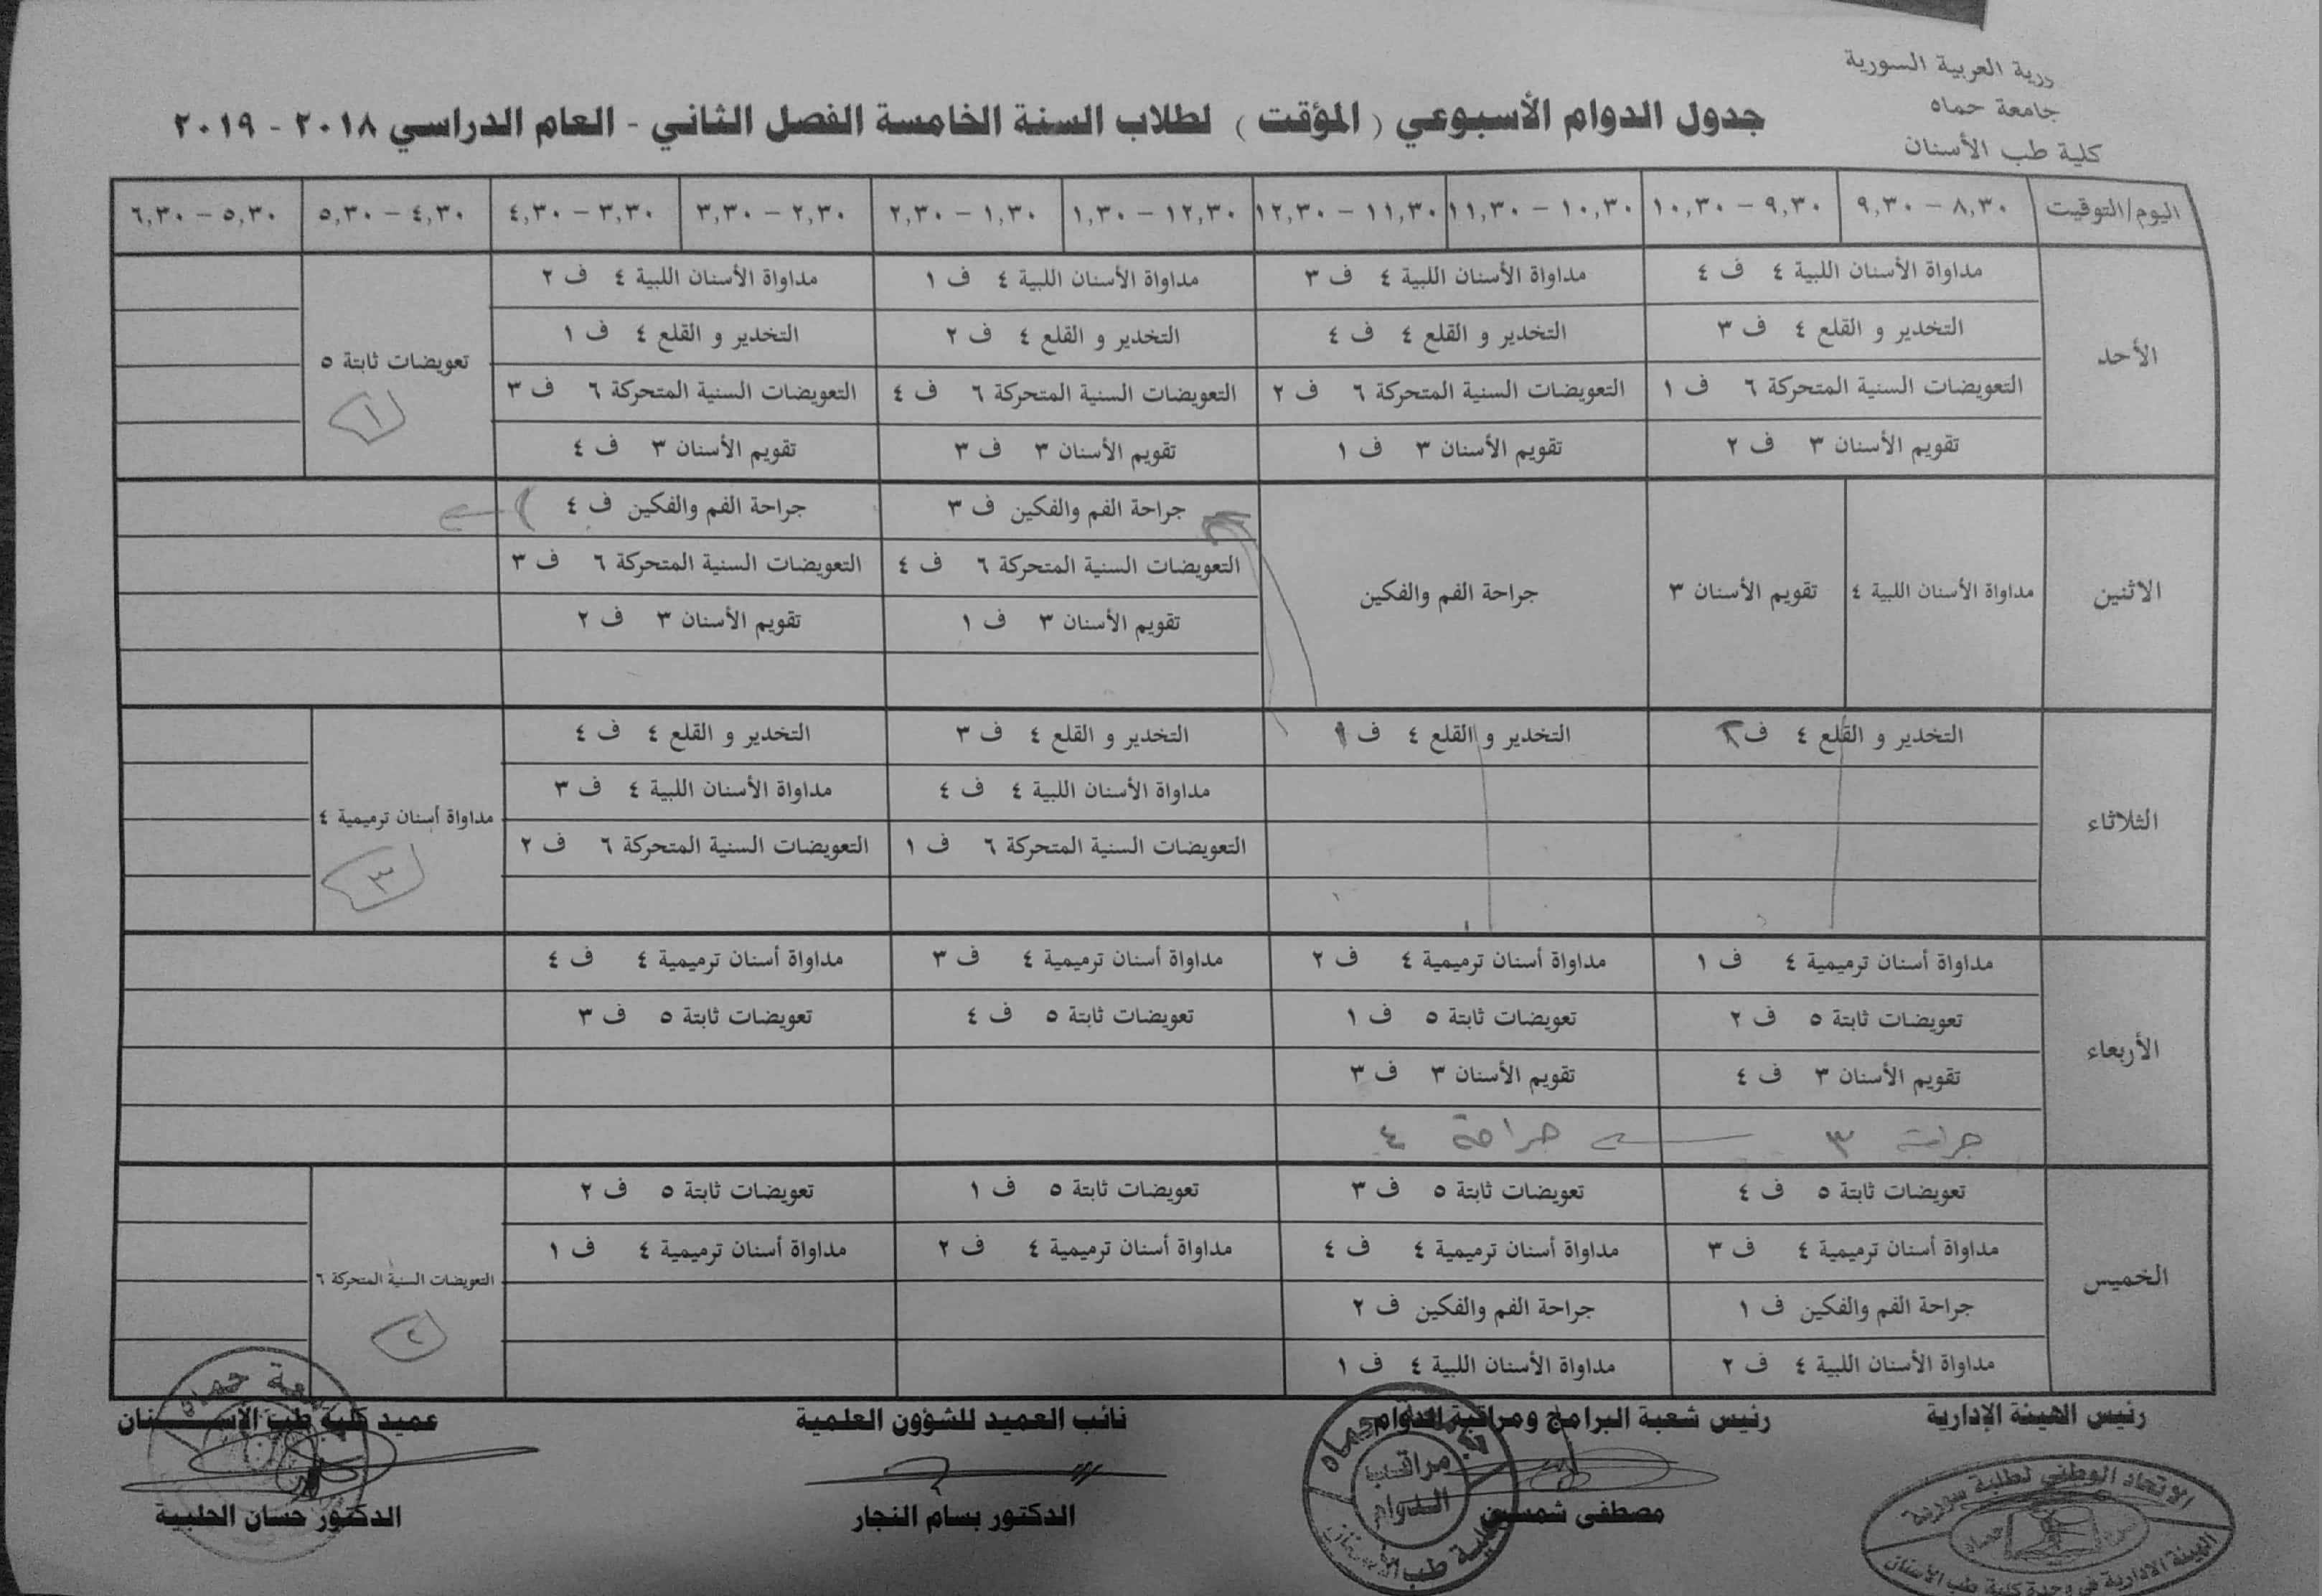 جامعة حماه
كلية طب الأسنان
جدول الدوام الأسبوعي ( المؤقت ) لطلاب السنة الخامسة الفصل الثاني - العام الدراسي ٢٠١٨ - ٢٠١٩
اليوم/التوقيت ٨,٣٠ – ٩,٣٠ ٩,٣٠ – ١٠,٣٠ ١٠,٣٠ – ١١,٣٠ ١١,٣٠ – ١٢,٣٠ ١٢,٣٠ – ١,٣٠ ١,٣٠ – ٢,٣٠ ٢,٣٠ – ٣,٣٠ ٣,٣٠ – ٤,٣٠ ٤,٣٠ – ٥,٣٠ ٥,٣٠ – ٦,٣٠
الأحد
مداواة الأسنان اللبية ٤ ف ٤ مداواة الأسنان اللبية ٤ ف ٣ مداواة الأسنان اللبية ٤ ف ١ مداواة الأسنان اللبية ٤ ف ٢
التخدير و القلع ٤ ف ٣ التخدير و القلع ٤ ف ٤ التخدير و القلع ٤ ف ٢ التخدير و القلع ٤ ف ١
تعويضات ثابتة ٥
١
التعويضات السنية المتحركة ٦ ف ١ التعويضات السنية المتحركة ٦ ف ٢ التعويضات السنية المتحركة ٦ ف ٤ التعويضات السنية المتحركة ٦ ف ٣
تقويم الأسنان ٣ ف ٢ تقويم الأسنان ٣ ف ١ تقويم الأسنان ٣ ف ٣ تقويم الأسنان ٣ ف ٤
الاثنين
مداواة الأسنان اللبية ٤ تقويم الأسنان ٣ جراحة الفم والفكين
جراحة الفم والفكين ف ٣ جراحة الفم والفكين ف ٤
التعويضات السنية المتحركة ٦ ف ٤ التعويضات السنية المتحركة ٦ ف ٣
تقويم الأسنان ٣ ف ١ تقويم الأسنان ٣ ف ٢
الثلاثاء
التخدير و القلع ٤ ف ٢ التخدير و القلع ٤ ف ١ التخدير و القلع ٤ ف ٣ التخدير و القلع ٤ ف ٤
مداواة الأسنان اللبية ٤ ف ٤ مداواة الأسنان اللبية ٤ ف ٣
مداواة أسنان ترميمية ٤
٣
التعويضات السنية المتحركة ٦ ف ١ التعويضات السنية المتحركة ٦ ف ٢
الأربعاء
مداواة أسنان ترميمية ٤ ف ١ مداواة أسنان ترميمية ٤ ف ٢ مداواة أسنان ترميمية ٤ ف ٣ مداواة أسنان ترميمية ٤ ف ٤
تعويضات ثابتة ٥ ف ٢ تعويضات ثابتة ٥ ف ١ تعويضات ثابتة ٥ ف ٤ تعويضات ثابتة ٥ ف ٣
تقويم الأسنان ٣ ف ٤ تقويم الأسنان ٣ ف ٣
جراحة ٣ جراحة ٤
الخميس
تعويضات ثابتة ٥ ف ٤ تعويضات ثابتة ٥ ف ٣ تعويضات ثابتة ٥ ف ١ تعويضات ثابتة ٥ ف ٢
مداواة أسنان ترميمية ٤ ف ٣ مداواة أسنان ترميمية ٤ ف ٤ مداواة أسنان ترميمية ٤ ف ٢ مداواة أسنان ترميمية ٤ ف ١
التعويضات السنية المتحركة ٦
٢
جراحة الفم والفكين ف ١ جراحة الفم والفكين ف ٢
مداواة الأسنان اللبية ٤ ف ٢ مداواة الأسنان اللبية ٤ ف ١
رئيس الهيئة الإدارية رئيس شعبة البرامج ومراقبة الدوام نائب العميد للشؤون العلمية عميد كلية طب الأسنان
مصطفى الدكتور بسام النجار الدكتور حسان الحلبية
مراقب
الدوام
كلية طب الأسنان
الاتحاد الوطني لطلبة سورية
الهيئة الادارية في وحدة كلية طب الأسنان